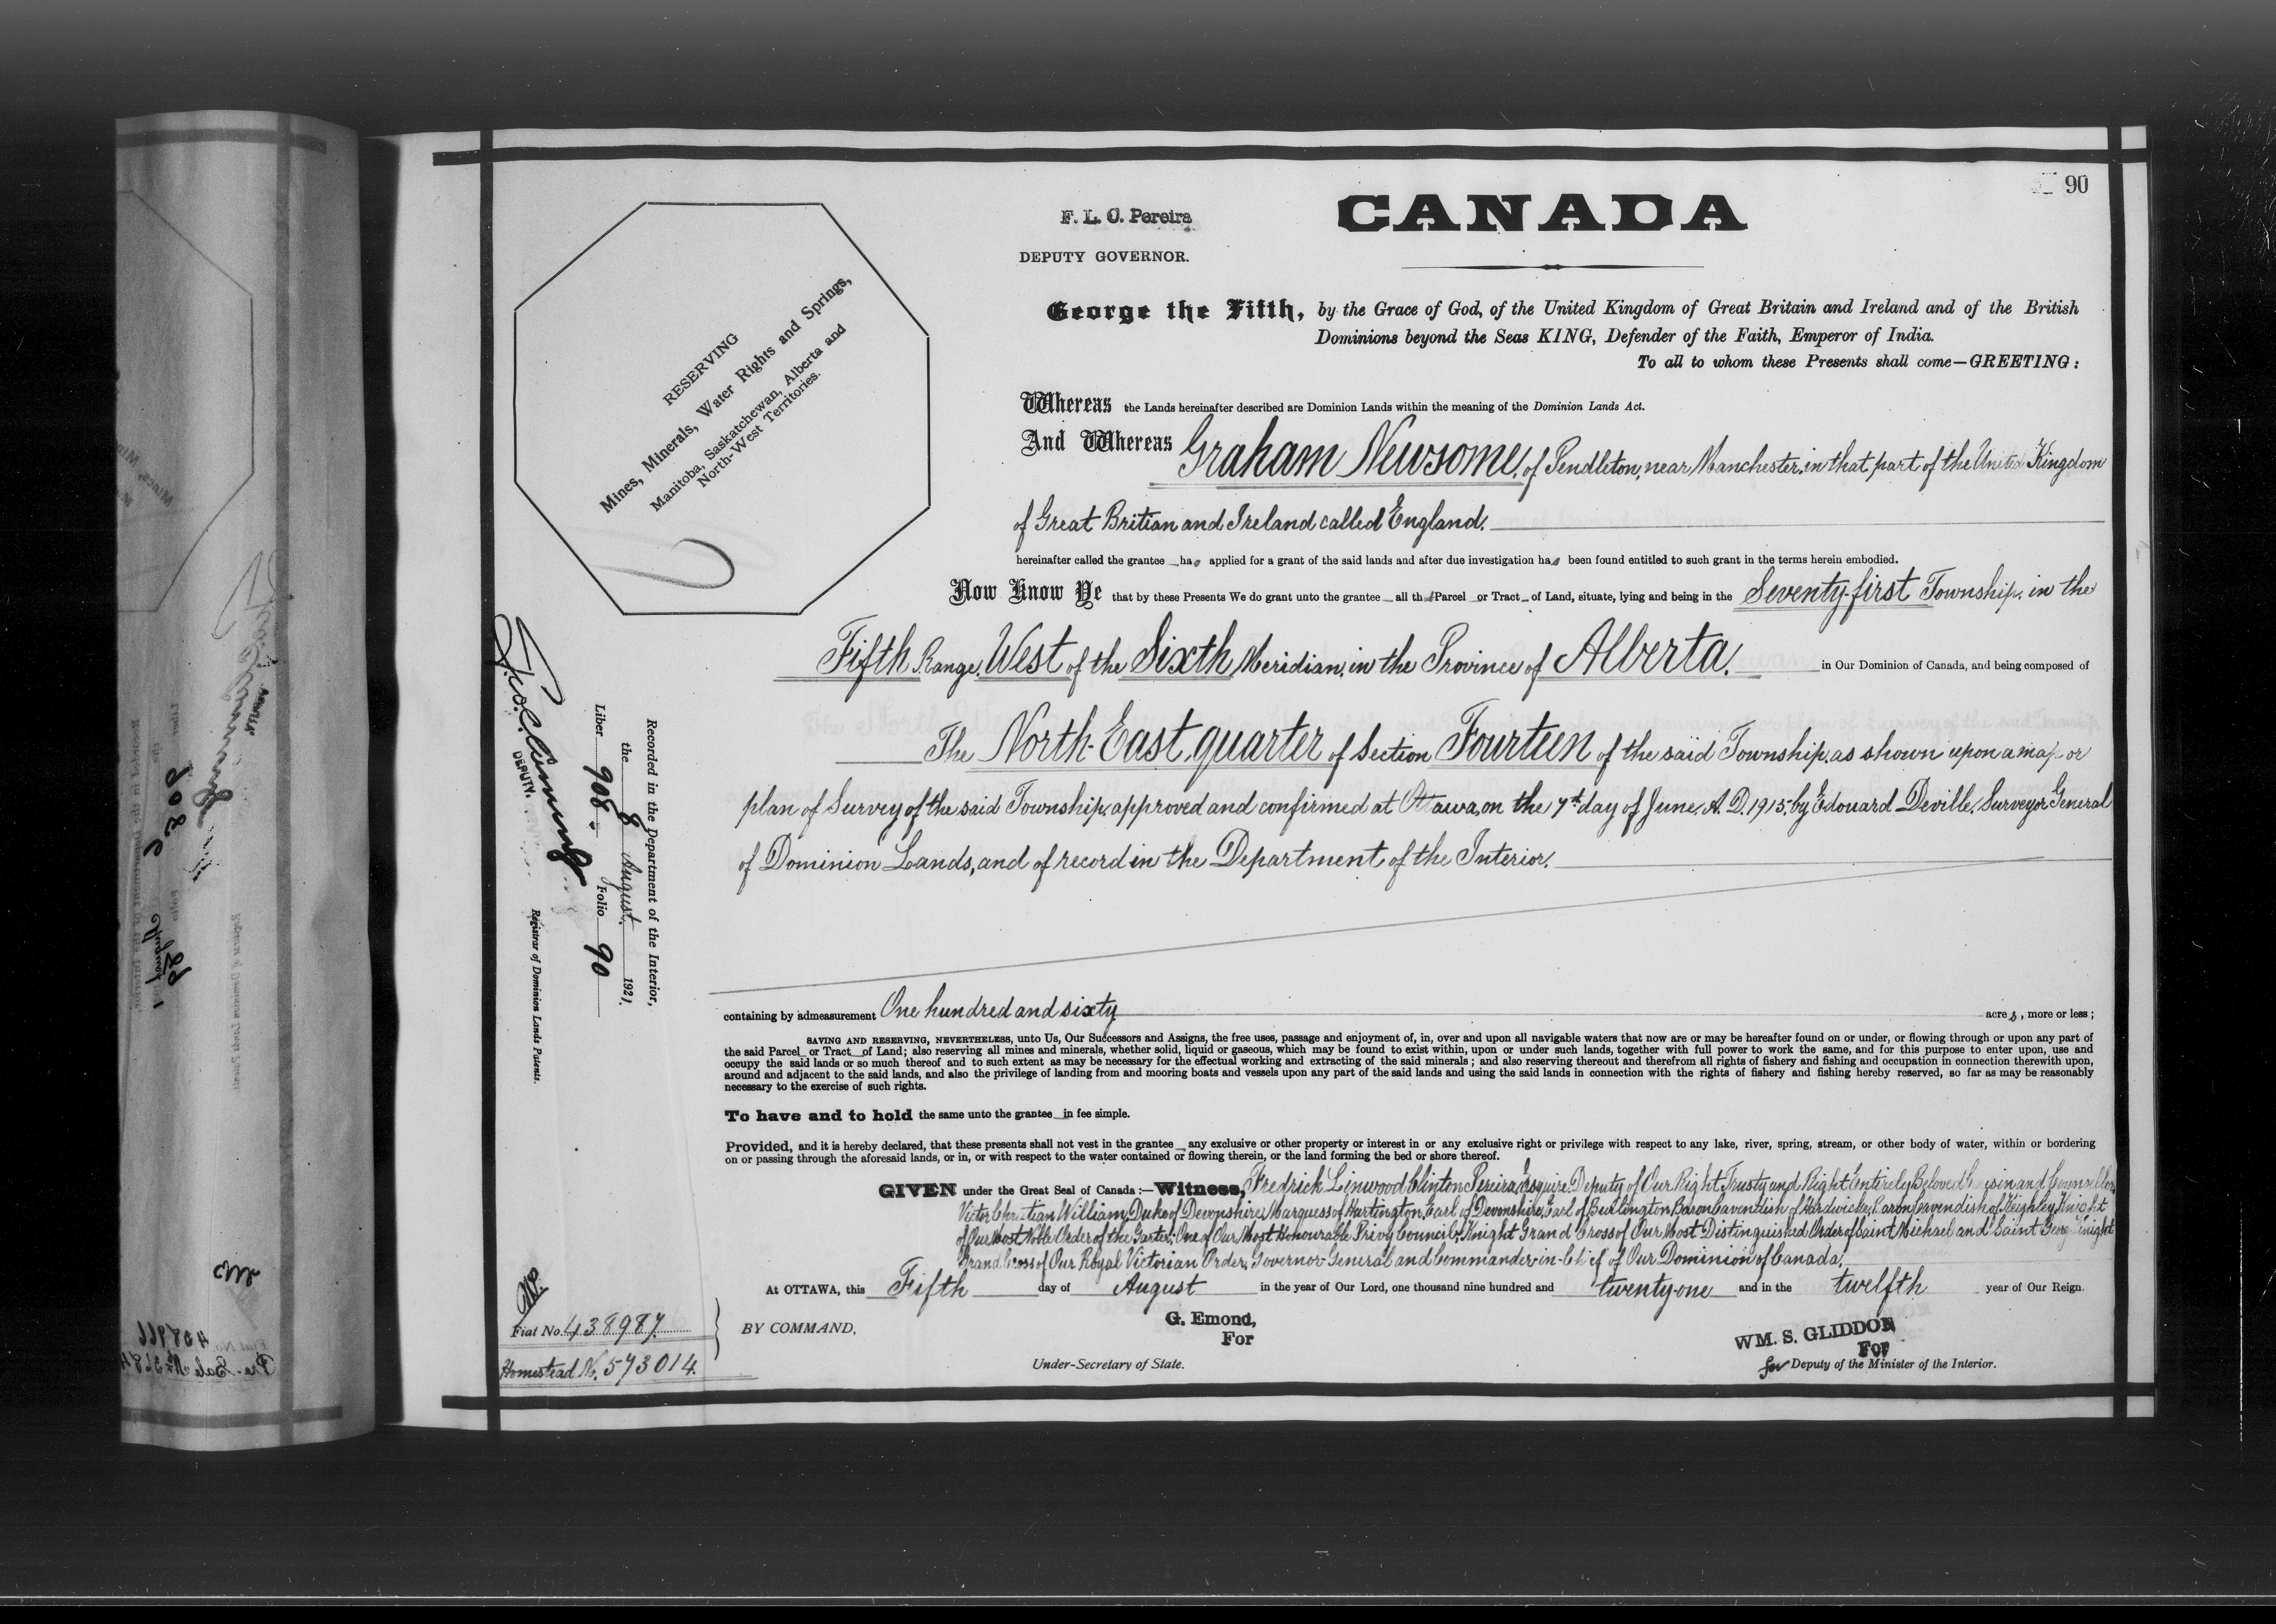 90
F. L. C. Pereira
DEPUTY GOVERNOR.
CANADA
George the Fifth, by the Grace of God, of the United Kingdom of Great Britain and Ireland and of the British
Dominions beyond the Seas KING, Defender of the Faith, Emperor of India.
To all to whom these Presents shall come—GREETING:
RESERVING
Mines, Minerals, Water Rights and Springs,
Manitoba, Saskatchewan, Alberta and
North-West Territories.
Whereas the Lands hereinafter described are Dominion Lands within the meaning of the Dominion Lands Act.
And Whereas Graham Newsome, of Pendleton, near Manchester, in that part of the United Kingdom
of Great Britian and Ireland called England.
hereinafter called the grantee has applied for a grant of the said lands and after due investigation has been found entitled to such grant in the terms herein embodied.
Now Know Ye that by these Presents We do grant unto the grantee all that Parcel or Tract of Land, situate, lying and being in the Seventy-first Township, in the
Fifth Range, West of the Sixth Meridian, in the Province of Alberta, in Our Dominion of Canada, and being composed of
The North-East quarter of Section Fourteen of the said Township, as shown upon a map or
plan of Survey of the said Township, approved and confirmed at Ottawa, on the 7th day of June, A. D. 1915, by Edouard Deville, Surveyor General
of Dominion Lands, and of record in the Department of the Interior.
containing by admeasurement One hundred and sixty acres, more or less;
SAVING AND RESERVING, NEVERTHELESS, unto Us, Our Successors and Assigns, the free uses, passage and enjoyment of, in, over and upon all navigable waters that now are or may be hereafter found on or under, or flowing through or upon any part of
the said Parcel or Tract of Land; also reserving all mines and minerals, whether solid, liquid or gaseous, which may be found to exist within, upon or under such lands, together with full power to work the same, and for this purpose to enter upon, use and
occupy the said lands or so much thereof and to such extent as may be necessary for the effectual working and extracting of the said minerals; and also reserving thereout and therefrom all rights of fishery and fishing and occupation in connection therewith upon,
around and adjacent to the said lands, and also the privilege of landing from and mooring boats and vessels upon any part of the said lands and using the said lands in connection with the rights of fishery and fishing hereby reserved, so far as may be reasonably
necessary to the exercise of such rights.
To have and to hold the same unto the grantee in fee simple.
Provided, and it is hereby declared, that these presents shall not vest in the grantee any exclusive or other property or interest in or any exclusive right or privilege with respect to any lake, river, spring, stream, or other body of water, within or bordering
on or passing through the aforesaid lands, or in, or with respect to the water contained or flowing therein, or the land forming the bed or shore thereof.
GIVEN under the Great Seal of Canada:—Witness, Fredrick Linwood Clinton Pereira, Esquire, Deputy of Our Right Trusty and Right Entirely Beloved Cousin and Counsellor,
Victor Christian William, Duke of Devonshire, Marquess of Hartington, Earl of Devonshire, Earl of Burlington, Baron Cavendish of Hardwicke, Baron Cavendish of Keighley, Knight
of Our Most Noble Order of the Garter; One of Our Most Honourable Privy Council; Knight Grand Cross of Our Most Distinguished Order of Saint Michael and Saint George; Knight
Grand Cross of Our Royal Victorian Order; Governor General and Commander-in-Chief of Our Dominion of Canada.
At OTTAWA, this Fifth day of August in the year of Our Lord, one thousand nine hundred and twenty-one and in the twelfth year of Our Reign.
BY COMMAND,
G. Emond,
For
Under-Secretary of State.
WM. S. GLIDDON
For
for Deputy of the Minister of the Interior.
Recorded in the Department of the Interior,
the 8 August 1921.
Liber 908. Folio 90
DEPUTY.
Registrar of Dominion Lands Patents.
Fiat No. 438987.
Homestead No. 573014.